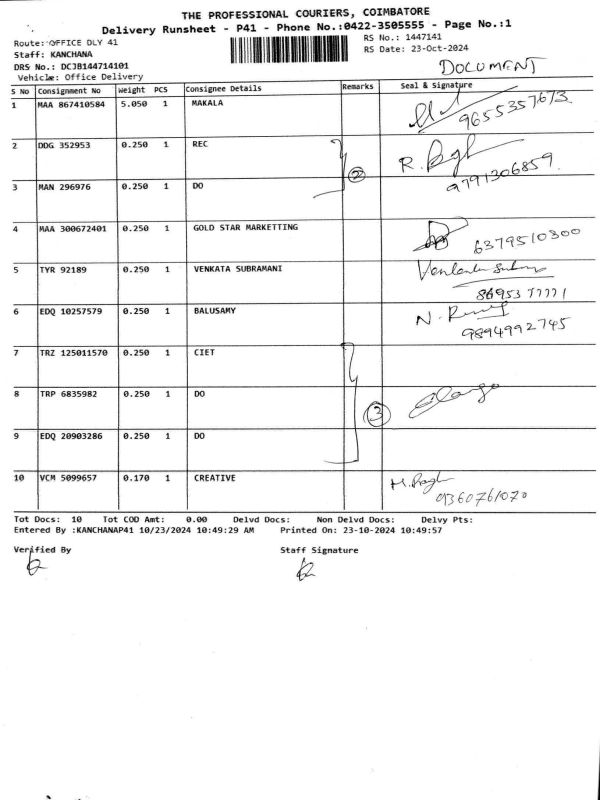 THE PROFESSIONAL COURIERS, COIMBATORE
Delivery Runsheet - P41 - Phone No.:0422-3505555 - Page No.:1
Route: OFFICE DLY 41
RS No.: 1447141
Staff: KANCHANA
RS Date: 23-Oct-2024
DRS No.: DCJB144714101
DOCUMENT
Vehicle: Office Delivery
S No Consignment No Weight PCS Consignee Details Remarks Seal & Signature
1 MAA 867410584 5.050 1 MAKALA
9655357673
2 DDG 352953 0.250 1 REC
R.
2
9791306859
3 MAN 296976 0.250 1 DO
4 MAA 300672401 0.250 1 GOLD STAR MARKETTING
6379510300
5 TYR 92189 0.250 1 VENKATA SUBRAMANI
869537777 1
6 EDQ 10257579 0.250 1 BALUSAMY
N.
9894992745
7 TRZ 125011570 0.250 1 CIET
8 TRP 6835982 0.250 1 DO
3
9 EDQ 20903286 0.250 1 DO
10 VCM 5099657 0.170 1 CREATIVE
9360761070
Tot Docs: 10 Tot COD Amt: 0.00 Delvd Docs: Non Delvd Docs: Delvy Pts:
Entered By :KANCHANAP41 10/23/2024 10:49:29 AM Printed On: 23-10-2024 10:49:57
Verified By Staff Signature